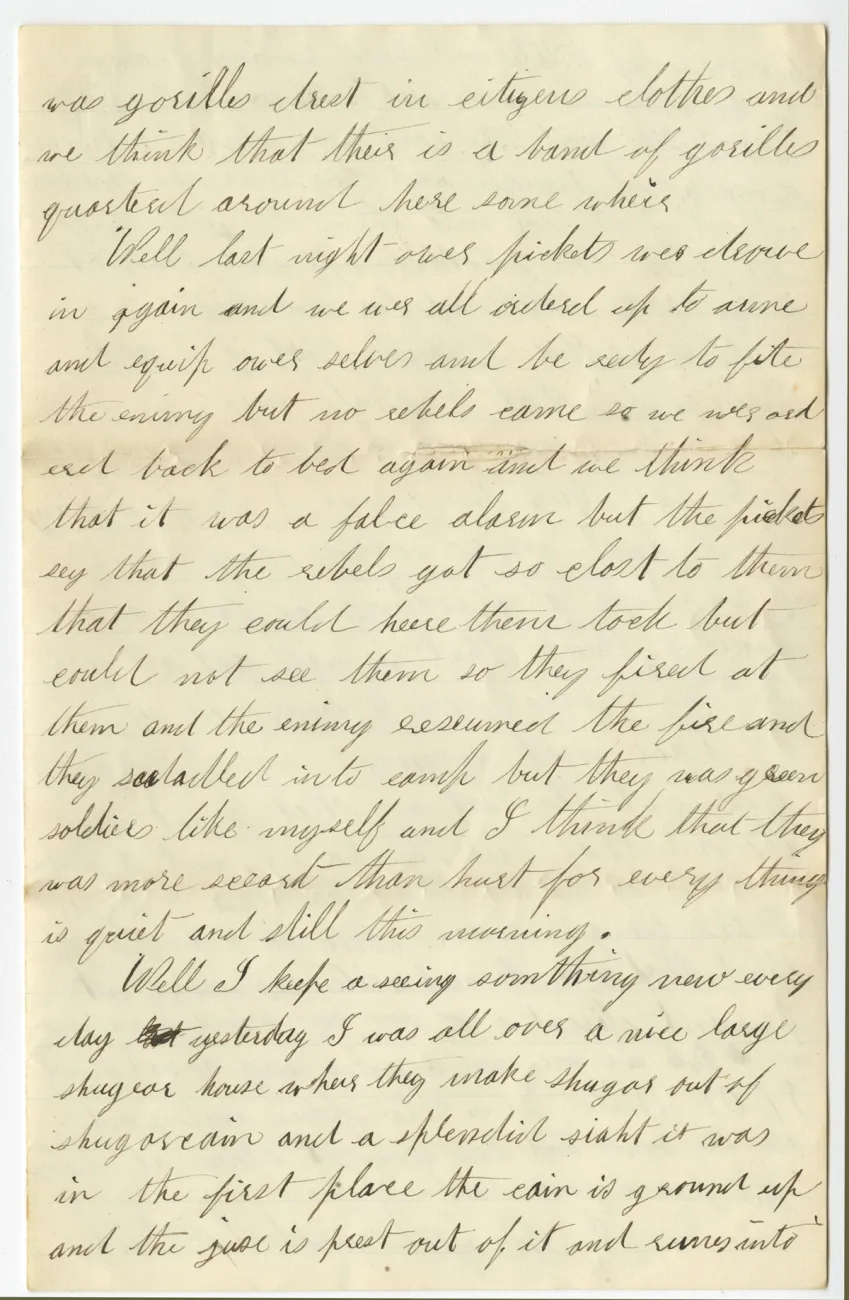 was gorilles drest in citizens clothes and
we think that their is a band of gorilles
quarterd around here some wheir
Well last night ower pickets wer drove
in again and we wer all orderd up to arme
and equip ower selves and be redy to fite
the enimy but no rebels came so we wer ord
erd back to bed again and we think
that it was a falce alarm but the pickets
sey that the rebels got so clost to them
that they could heere them tock but
could not see them so they fired at
them and the enimy resurned the fire and
they scadadled into camp but they was green
soldiers like myself and I think that they
was more sceard than hurt for every thing
is quiet and still this morning.
Well I keepe a seeing somthing new every
day yesterday I was all over a nice large
shugear house wher they make shugar out of
shugarcain and a splendid siaht it was
in the first place the cain is ground up
and the juse is prest out of it and runes into